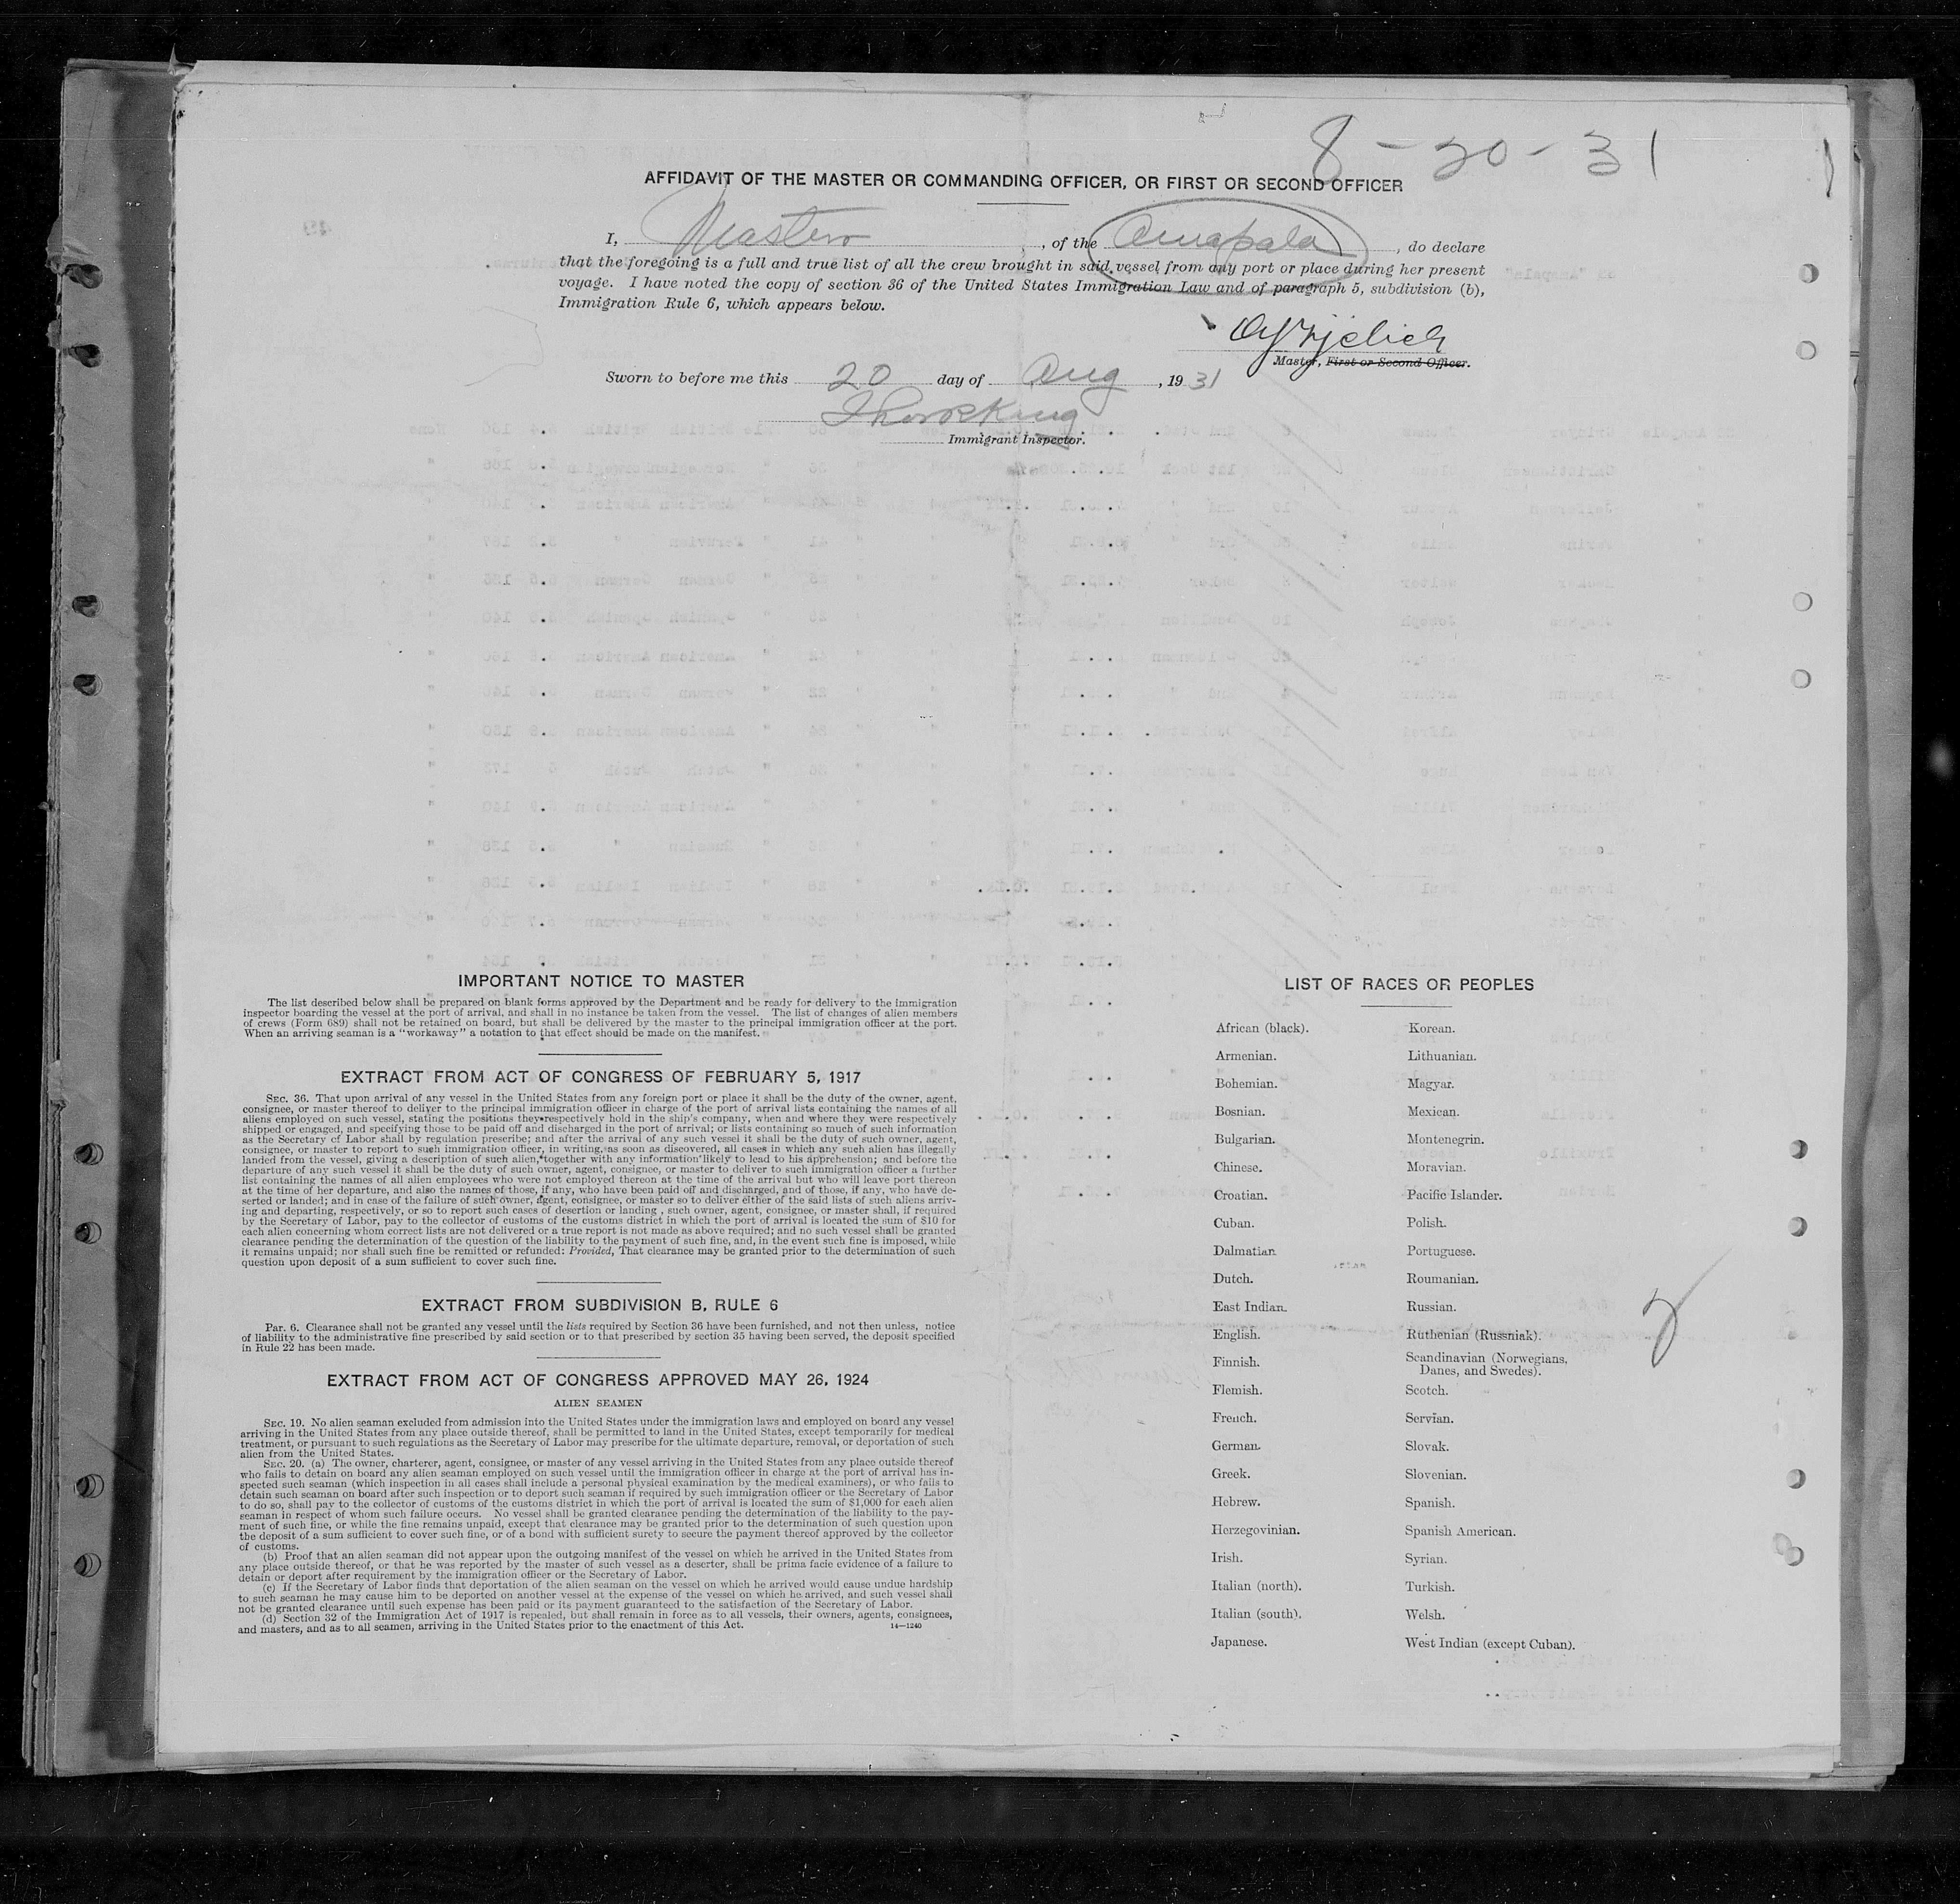 8-20-31
AFFIDAVIT OF THE MASTER OR COMMANDING OFFICER, OR FIRST OR SECOND OFFICER
I, Master, of the Amapala, do declare
that the foregoing is a full and true list of all the crew brought in said vessel from any port or place during her present
voyage. I have noted the copy of section 36 of the United States Immigration Law and of paragraph 5, subdivision (b),
Immigration Rule 6, which appears below.
Master, First or Second Officer.
Sworn to before me this 20 day of Aug, 1931
Immigrant Inspector.
IMPORTANT NOTICE TO MASTER
The list described below shall be prepared on blank forms approved by the Department and be ready for delivery to the immigration
inspector boarding the vessel at the port of arrival, and shall in no instance be taken from the vessel. The list of changes of alien members
of crews (Form 689) shall not be retained on board, but shall be delivered by the master to the principal immigration officer at the port.
When an arriving seaman is a "workaway" a notation to that effect should be made on the manifest.
EXTRACT FROM ACT OF CONGRESS OF FEBRUARY 5, 1917
SEC. 36. That upon arrival of any vessel in the United States from any foreign port or place it shall be the duty of the owner, agent,
consignee, or master thereof to deliver to the principal immigration officer in charge of the port of arrival lists containing the names of all
aliens employed on such vessel, stating the positions they respectively hold in the ship's company, when and where they were respectively
shipped or engaged, and specifying those to be paid off and discharged in the port of arrival; or lists containing so much of such information
as the Secretary of Labor shall by regulation prescribe; and after the arrival of any such vessel it shall be the duty of such owner, agent,
consignee, or master to report to such immigration officer, in writing, as soon as discovered, all cases in which any such alien has illegally
landed from the vessel, giving a description of such alien, together with any information likely to lead to his apprehension; and before the
departure of any such vessel it shall be the duty of such owner, agent, consignee, or master to deliver to such immigration officer a further
list containing the names of all alien employees who were not employed thereon at the time of the arrival but who will leave port thereon
at the time of her departure, and also the names of those, if any, who have been paid off and discharged, and of those, if any, who have de-
serted or landed; and in case of the failure of such owner, agent, consignee, or master so to deliver either of the said lists of such aliens arriv-
ing and departing, respectively, or so to report such cases of desertion or landing, such owner, agent, consignee, or master shall, if required
by the Secretary of Labor, pay to the collector of customs of the customs district in which the port of arrival is located the sum of $10 for
each alien concerning whom correct lists are not delivered or a true report is not made as above required; and no such vessel shall be granted
clearance pending the determination of the question of the liability to the payment of such fine, and, in the event such fine is imposed, while
it remains unpaid; nor shall such fine be remitted or refunded: Provided, That clearance may be granted prior to the determination of such
question upon deposit of a sum sufficient to cover such fine.
EXTRACT FROM SUBDIVISION B, RULE 6
PAR. 6. Clearance shall not be granted any vessel until the lists required by Section 36 have been furnished, and not then unless, notice
of liability to the administrative fine prescribed by said section or to that prescribed by section 35 having been served, the deposit specified
in Rule 22 has been made.
EXTRACT FROM ACT OF CONGRESS APPROVED MAY 26, 1924
ALIEN SEAMEN
SEC. 19. No alien seaman excluded from admission into the United States under the immigration laws and employed on board any vessel
arriving in the United States from any place outside thereof, shall be permitted to land in the United States, except temporarily for medical
treatment, or pursuant to such regulations as the Secretary of Labor may prescribe for the ultimate departure, removal, or deportation of such
alien from the United States.
SEC. 20. (a) The owner, charterer, agent, consignee, or master of any vessel arriving in the United States from any place outside thereof
who fails to detain on board any alien seaman employed on such vessel until the immigration officer in charge at the port of arrival has in-
spected such seaman (which inspection in all cases shall include a personal physical examination by the medical examiners), or who fails to
detain such seaman on board after such inspection or to deport such seaman if required by such immigration officer or the Secretary of Labor
to do so, shall pay to the collector of customs of the customs district in which the port of arrival is located the sum of $1,000 for each alien
seaman in respect of whom such failure occurs. No vessel shall be granted clearance pending the determination of the liability to the pay-
ment of such fine, or while the fine remains unpaid, except that clearance may be granted prior to the determination of such question upon
the deposit of a sum sufficient to cover such fine, or of a bond with sufficient surety to secure the payment thereof approved by the collector
of customs.
(b) Proof that an alien seaman did not appear upon the outgoing manifest of the vessel on which he arrived in the United States from
any place outside thereof, or that he was reported by the master of such vessel as a deserter, shall be prima facie evidence of a failure to
detain or deport after requirement by the immigration officer or the Secretary of Labor.
(c) If the Secretary of Labor finds that deportation of the alien seaman on the vessel on which he arrived would cause undue hardship
to such seaman he may cause him to be deported on another vessel at the expense of the vessel on which he arrived, and such vessel shall
not be granted clearance until such expense has been paid or its payment guaranteed to the satisfaction of the Secretary of Labor.
(d) Section 32 of the Immigration Act of 1917 is repealed, but shall remain in force as to all vessels, their owners, agents, consignees,
and masters, and as to all seamen, arriving in the United States prior to the enactment of this Act.
14—1240
LIST OF RACES OR PEOPLES
African (black).
Armenian.
Bohemian.
Bosnian.
Bulgarian.
Chinese.
Croatian.
Cuban.
Dalmatian.
Dutch.
East Indian.
English.
Finnish.
Flemish.
French.
German.
Greek.
Hebrew.
Herzegovinian.
Irish.
Italian (north).
Italian (south).
Japanese.
Korean.
Lithuanian.
Magyar.
Mexican.
Montenegrin.
Moravian.
Pacific Islander.
Polish.
Portuguese.
Roumanian.
Russian.
Ruthenian (Russniak).
Scandinavian (Norwegians,
Danes, and Swedes).
Scotch.
Servian.
Slovak.
Slovenian.
Spanish.
Spanish American.
Syrian.
Turkish.
Welsh.
West Indian (except Cuban).